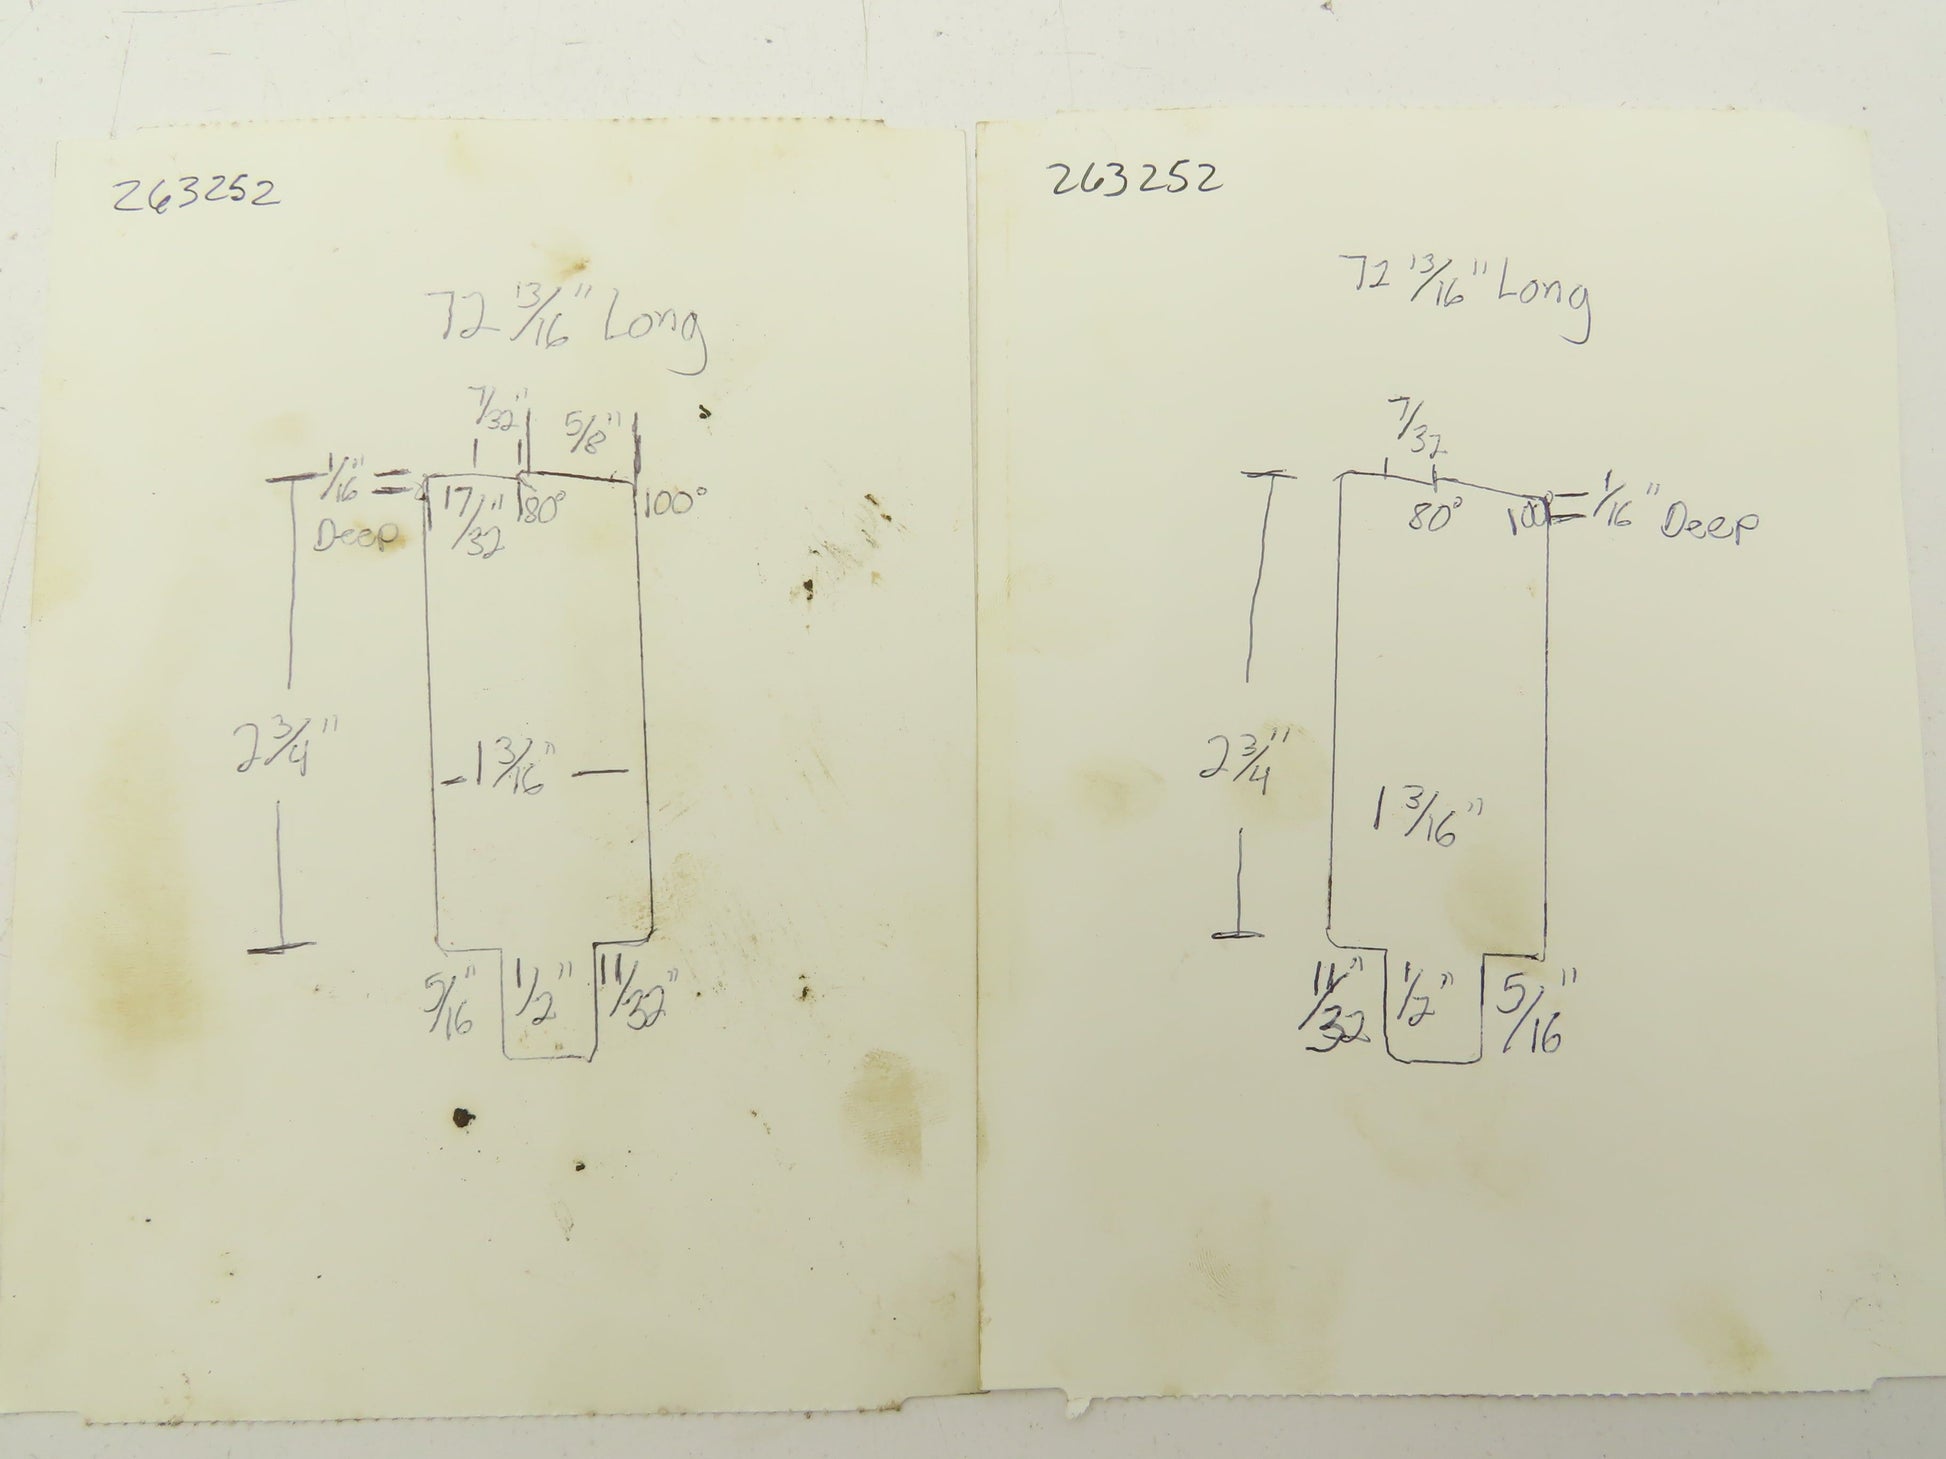 263252
72 13/16" Long
7/32"
5/8"
1/16"
Deep
17/32"
80°
100°
2 3/4"
1 3/16"
5/16"
1/2"
11/32"
263252
72 13/16" Long
7/32
80°
100°
1/16" Deep
2 3/4"
1 3/16"
11/32"
1/2"
5/16"